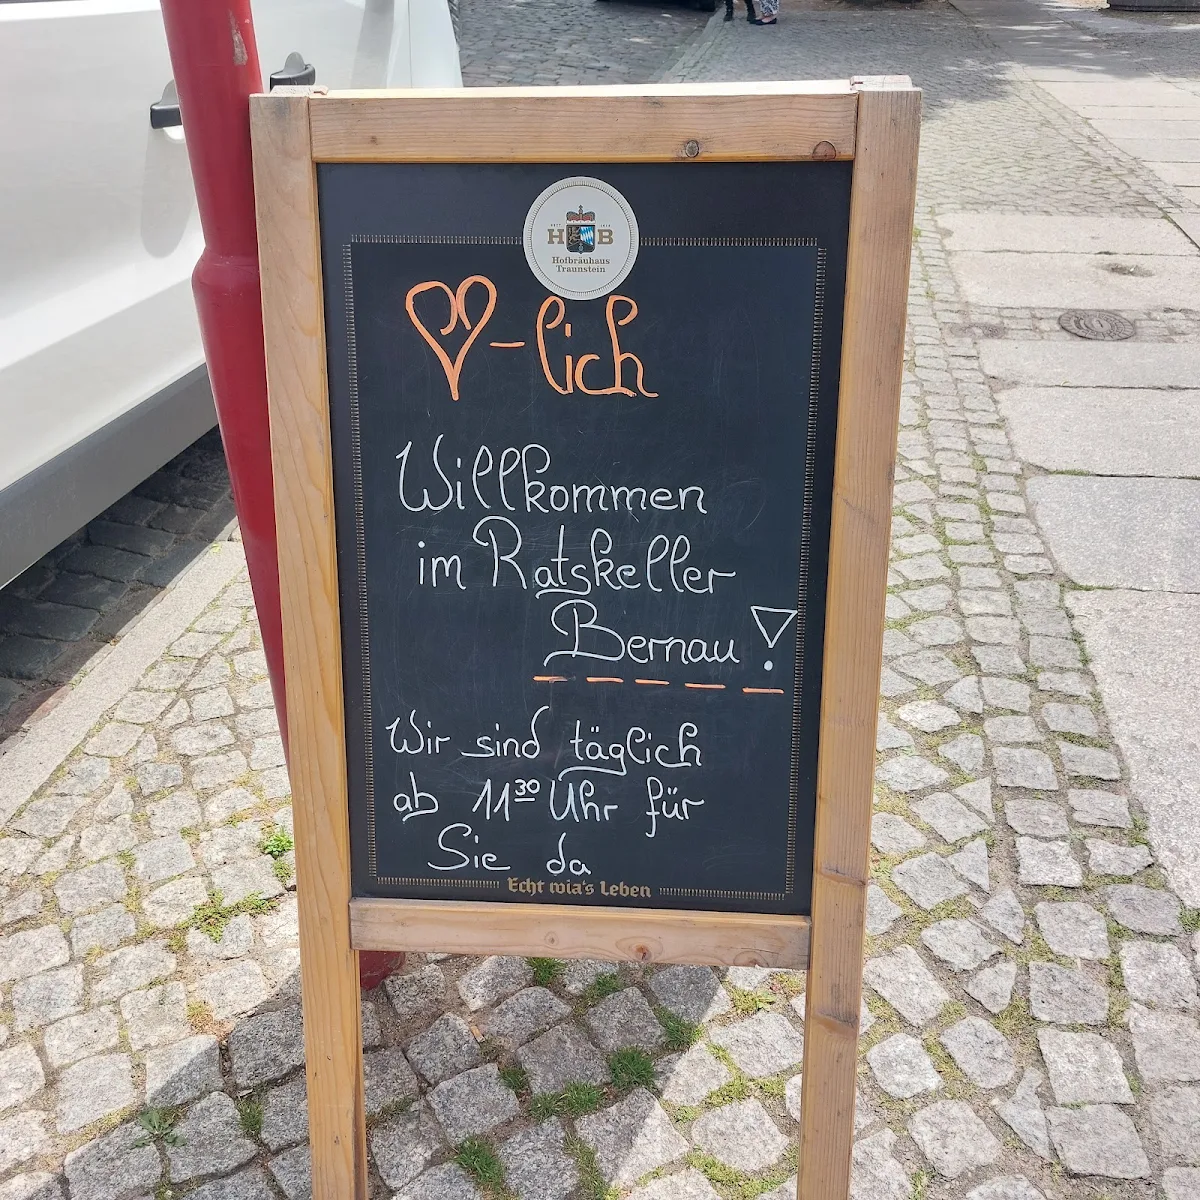 H B
Hofbräuhaus
Traunstein
♡-lich
Willkommen
im Ratskeller
Bernau!
Wir sind täglich
ab 11³⁰ Uhr für
Sie da
Echt wia's Leben